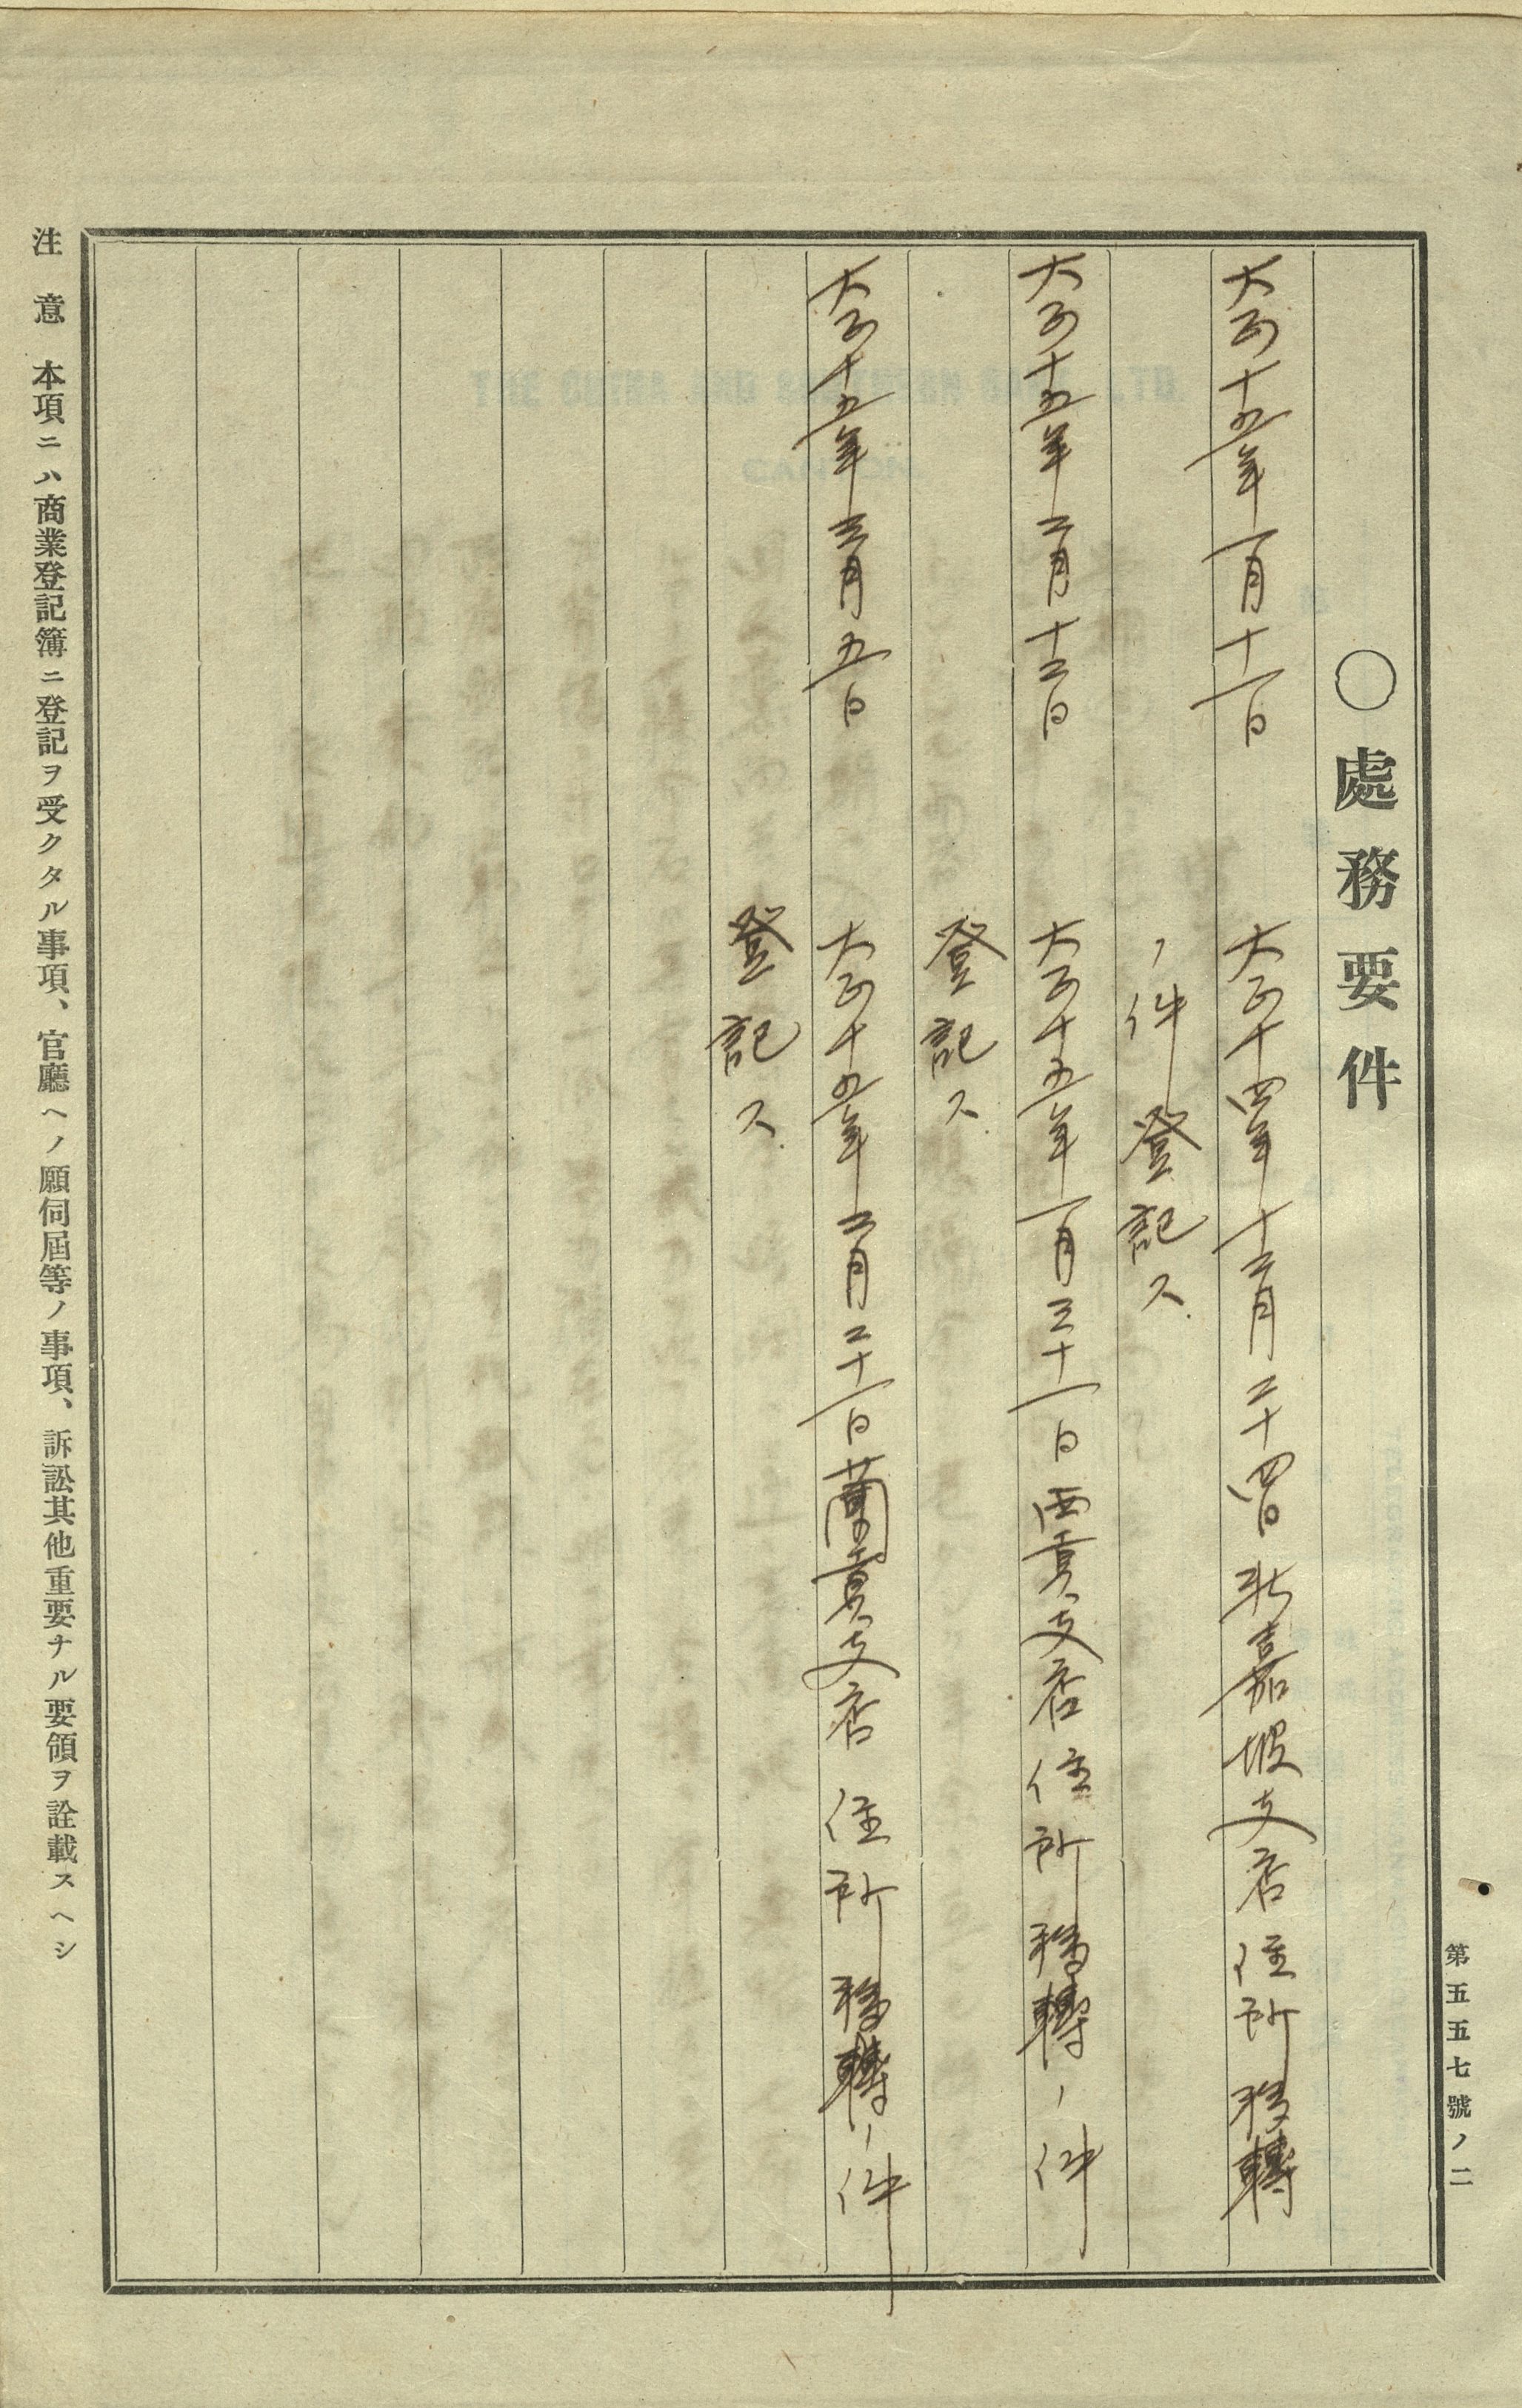 第五五七號ノ二
○處務要件
大正十五年一月十一日　大正十四年十二月二十四日新嘉坡支店住所移轉
ノ件登記ス
大正十五年二月十二日　大正十五年一月三十一日西貢支店住所移轉ノ件
登記ス
大正十五年三月五日　大正十五年二月二十一日蘭貢支店住所移轉ノ件
登記ス
注意　本項ニハ商業登記簿ニ登記ヲ受クタル事項、官廳ヘノ願伺屆等ノ事項、訴訟其他重要ナル要領ヲ詮載スヘシ